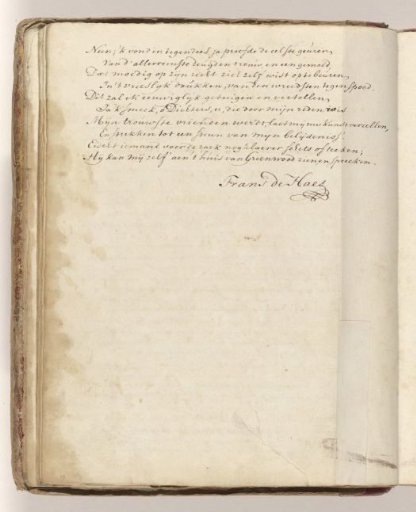 Neen, ik vond in tegendeel, ja proefde de eêlste geuren,
Van d'allerreinste deugden in een gemoed,
Dat moedig op zyn recht zich zelf wist op te beuren,
In 't vreeslyk drukken, van den wreedsten tegenspoed.
Dit zal ik eeuwiglyk getuigen en vertellen,
Ja ik smeek, Dichters, die door myn reden
Myn trouwste vrienden werdt, laat my uw kunst verzellen,
En strekken tot een steun van myn belydenis.
Eischt iemand voor de zaak nog klaerer
Hy kan my zelf aen 't huis van Groenwoed zien en spreeken.
Frans de Haes